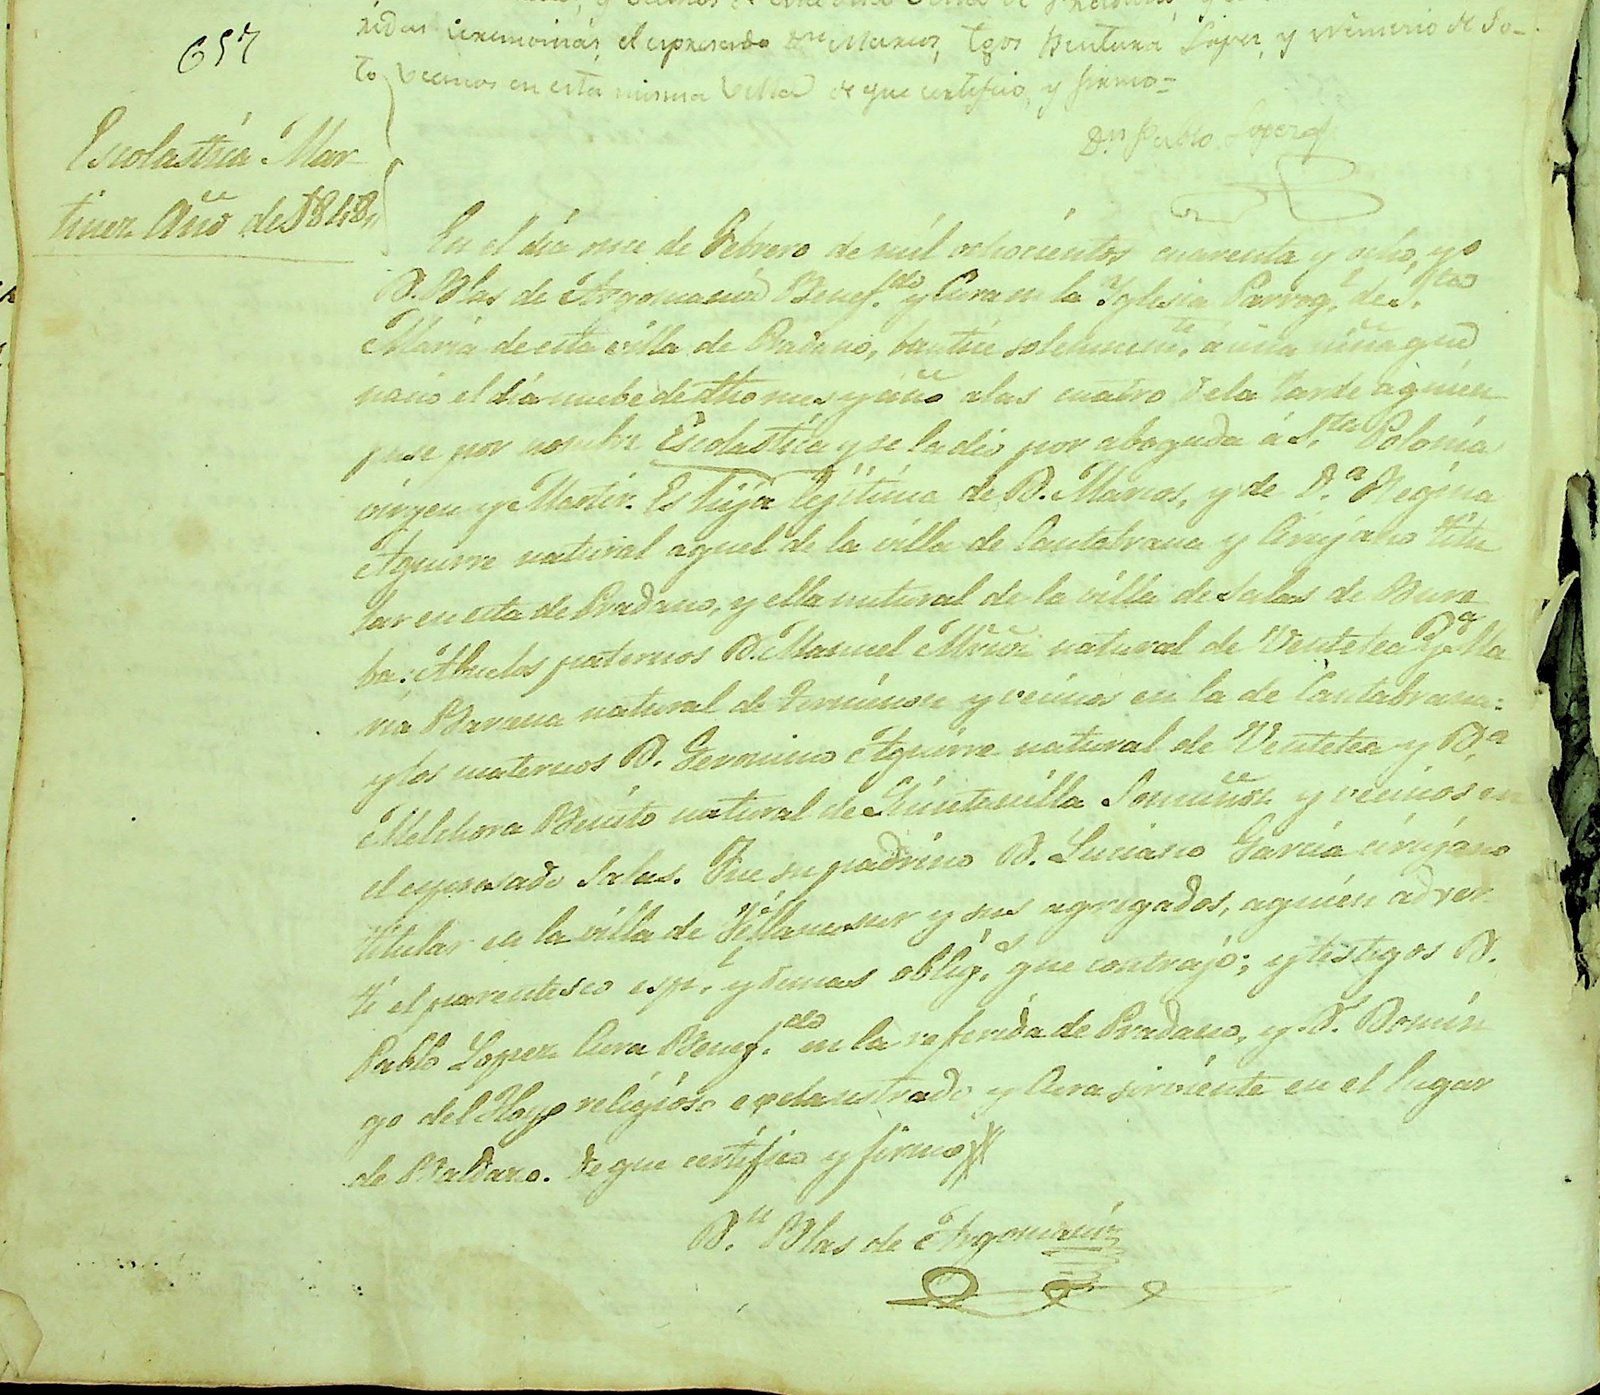 657
ridas ceremonias el espresado Dn Marcos, Tgos Ventura Lopez, y de So-
to vecinos en esta misma Villa de que certifico, y firmo=
Dn Pablo Lopez
Escolastica Mar
tinez Año de 1848,,
En el día once de Febrero de mil ochocientos cuarenta y ocho, yo
D. Blas de Argomaniz Benef.do y Cura en la Yglesia Parroq.l de S.ta
Maria de esta villa de Pradano, bauticé solemnem.te á una niña que
nacio el día nuebe de dho mes y año a las cuatro de la tarde a quien
puse por nombre Escolastica y se la dio por abogada á S.ta Polonia
virgen y Martir. Es hija lejitima de D. Marcos, y de D.a Regina
Aguirre natural aquel de la villa de Cantabrana y Cirujano titu
lar en esta de Pradano, y ella natural de la villa de Salas de Bure
ba: Abuelos paternos D. Manuel natural de Ventetea y D.a Ma
ria Barcena natural de Terminon y vecinos en la de Cantabrana:
y los maternos D. Geronimo Aguirre natural de Ventetea y D.a
Melchora Benito natural de Quintanilla y vecinos en
el espresado Salas. Fue su padrino D. Luciano Garcia cirujano
titular en la villa de Villanasur y sus agregados, a quien adver
tí el parentesco esp.l y demas oblig.s que contrajo; y testigos D.
Pablo Lopez Cura Benef.do en la referida de Pradano, y D. Domin
go del Hoyo religioso exclaustrado y Cura sirviente en el lugar
de Baldazo. De que certifico y firmo
D.n Blas de Argomaniz